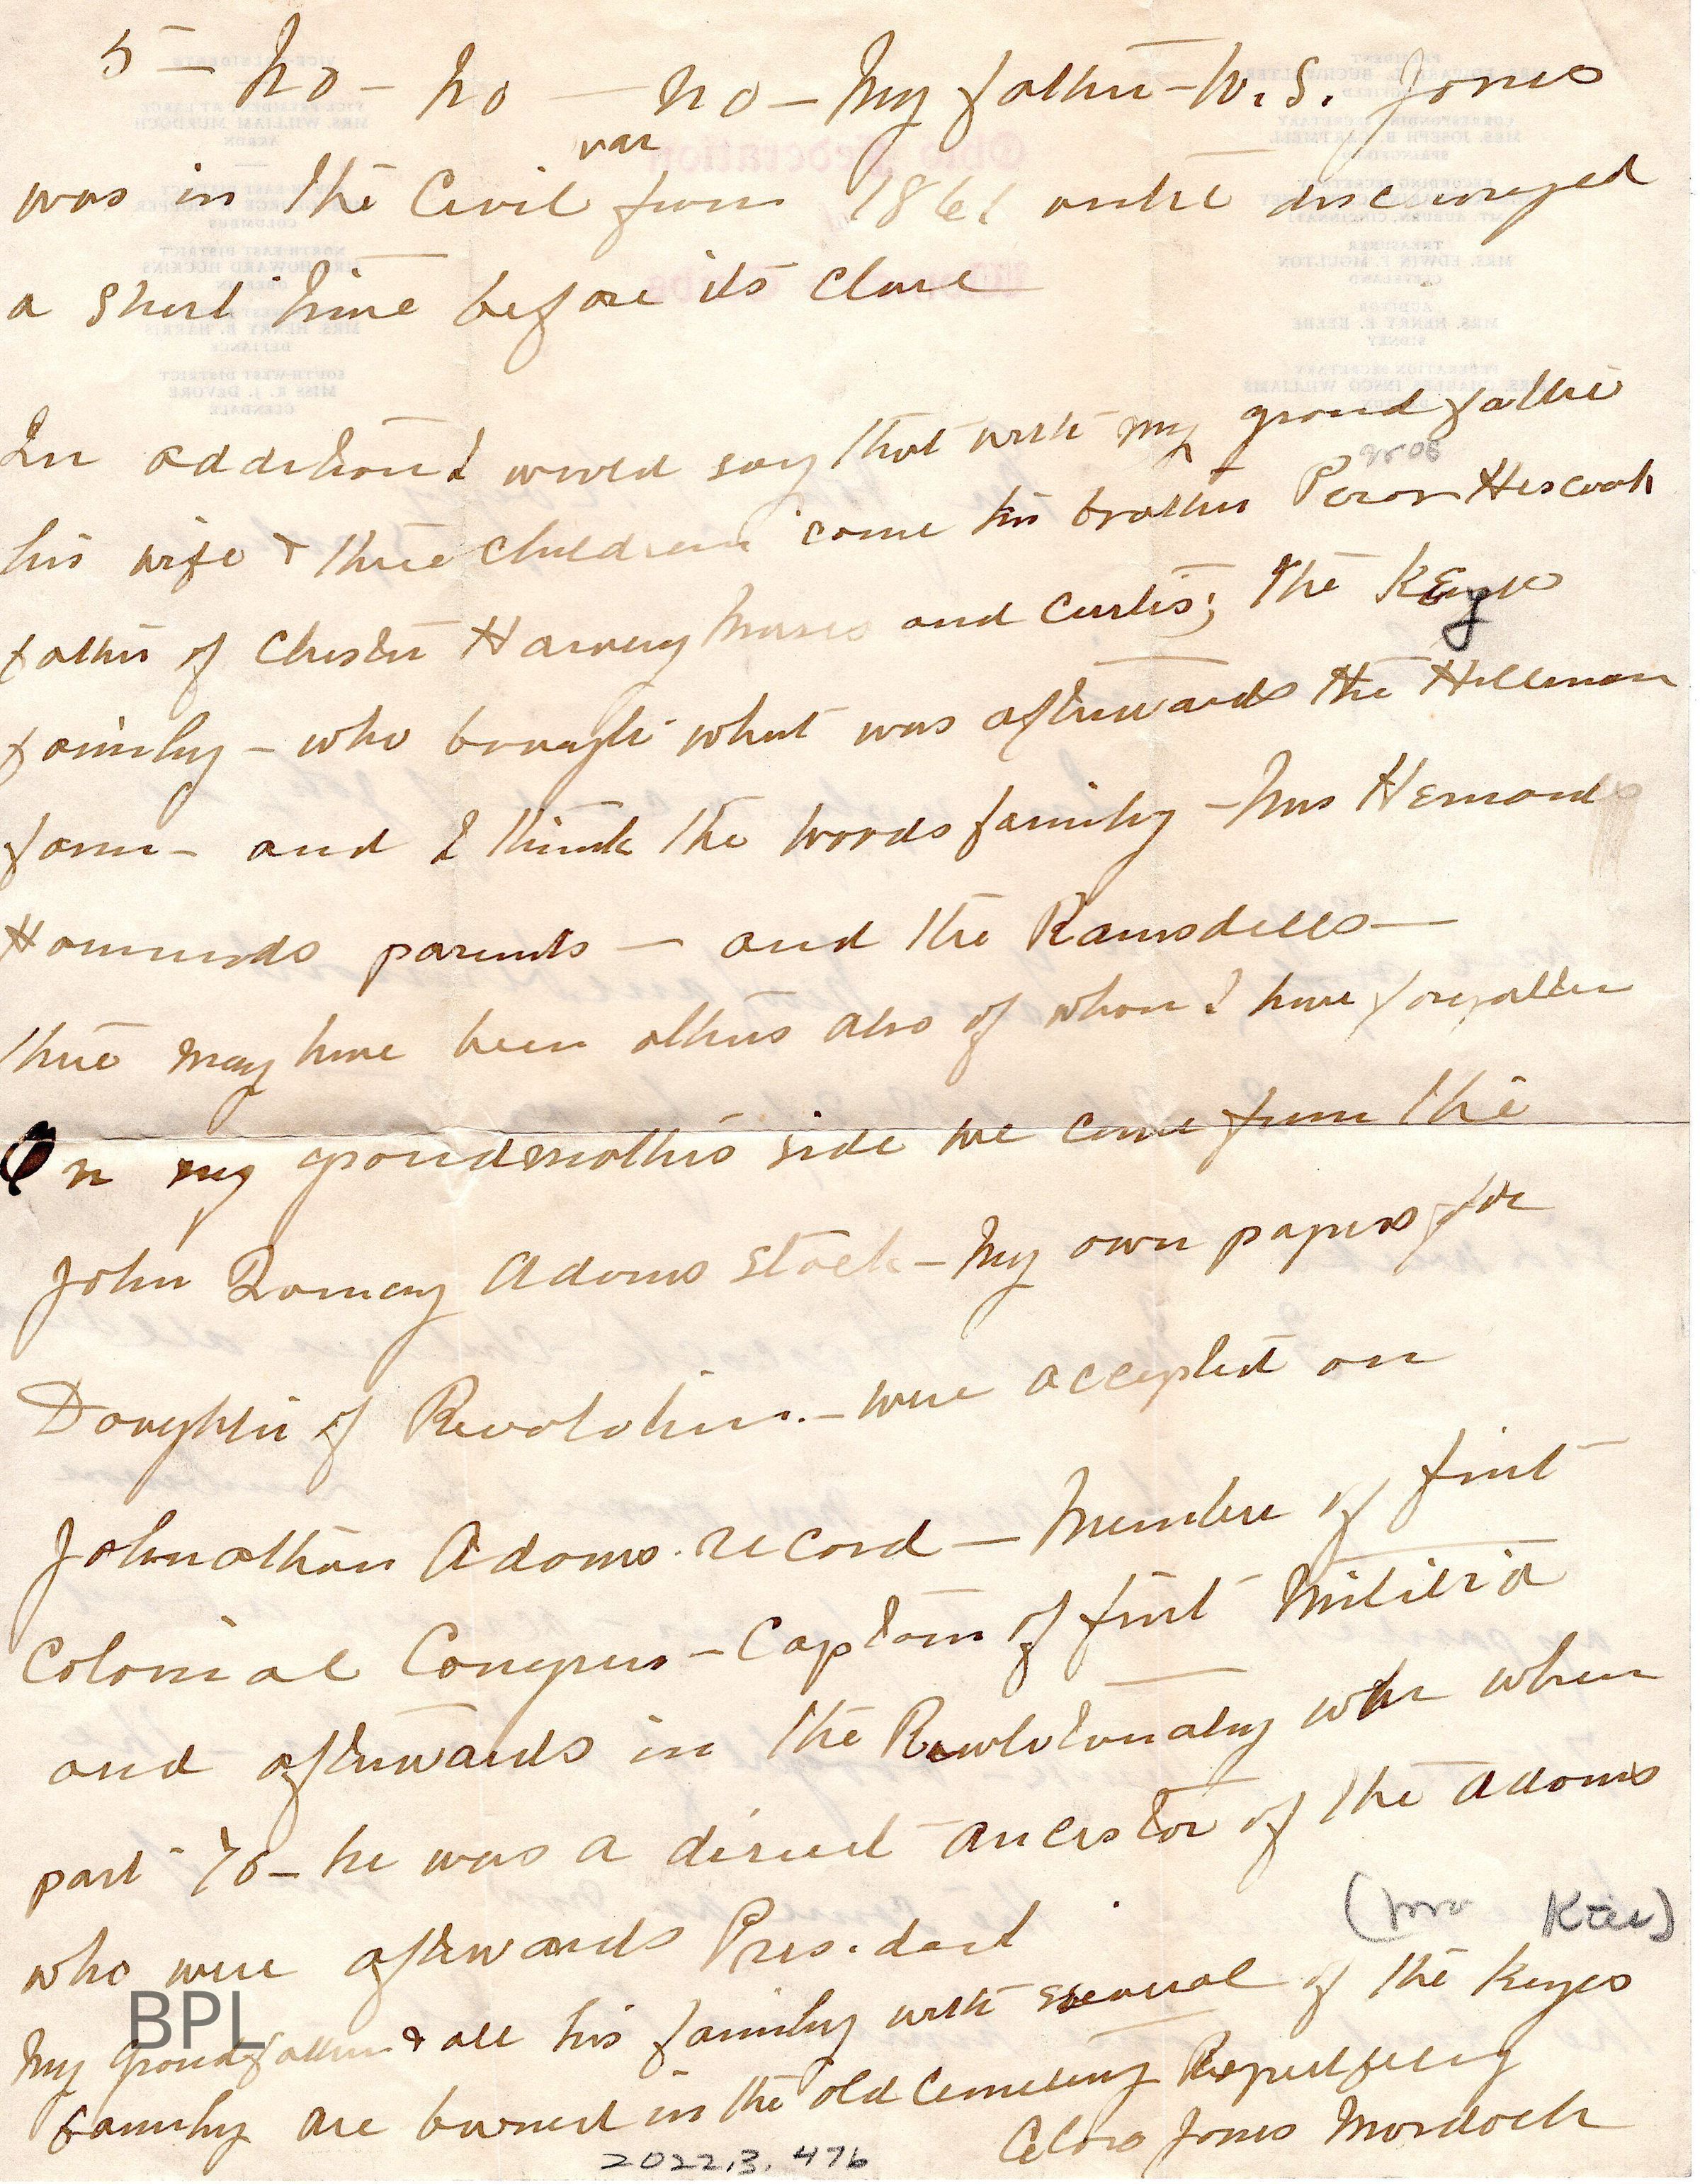 5 – no – no – no – My father – W. S. Jones
war
was in the Civil from 1861 until discharged
a short time before its close
In addition I would say that with my grandfather
his wife & three children came his brother Peror Hescock
father of Chester Harvey Moses and Curtis; the Keyes
family – who bought what was afterwards the Hillman
farm – and I think the Woods family – Mrs Hemonds
Hamunds parents – and the Ramsdells –
there may have been others also of whom I have forgotten
On my grandmothers side we come from the
John Quincy Adams stock – My own papers for
Daughter of Revolution. – were accepted on
Johnathan Adams record – Member of first
Colonial Congress – Captain of first Militia
and afterwards in the Revolutionary war when
past 70 – he was a direct ancestor of the Adams
who were afterwards President
(Mrs Kies)
My Grandfather & all his family with several of the Keyes
family are buried in the old Cemetery Respectfully
Clara Jones Murdock
2022.3.476
BPL